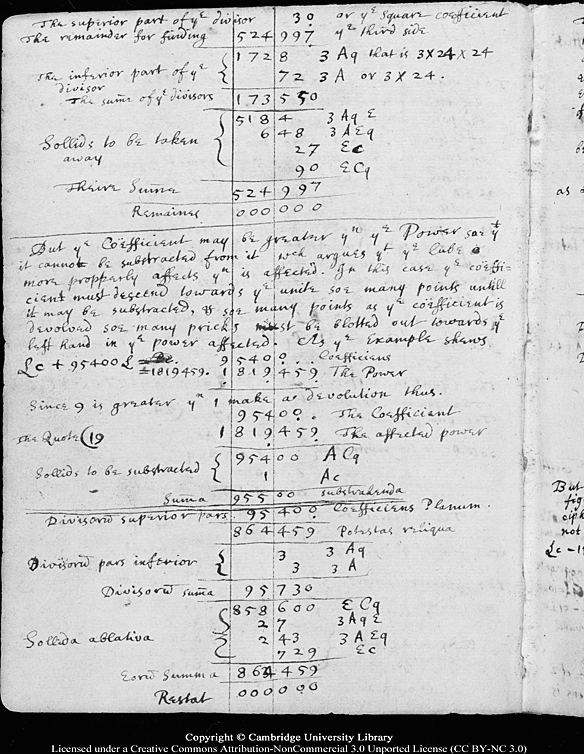 The superior part of yᵉ divisor 30 or yᵉ square coefficient
The remainder for finding 524997 yᵉ third side
The inferior part of yᵉ divisor { 1728 3Aq that is 3×24×24
72 3A or 3×24.
The sume of yᵉ divisors 173550
Sollids to be taken away { 5184 3AqE
648 3AEq
27 Ec
90 ECq
Theire Sume 524997
Remaines 000000
But yᵉ Coefficient may be greater yⁿ yᵉ Power soe yᵗ
it cannot be substracted from it wch argues yᵗ yᵉ Cube
more propperly affects yⁿ is affected. In this case yᵉ coeffi-
cient must descend towards yᵉ unite soe many points untill
it may be substracted, & soe many points as yᵉ coefficient is
devolved soe many pricks must be blotted out towards yᵉ
left hand in yᵉ power affected. As yᵉ Example shews
Lc + 95400L = 1819459. 95400. Coefficiens
1819459. The Power
Since 9 is greater yⁿ 1 make a devolution thus.
95400. The Coefficient
The Quote (19 1819459 The affected power
Sollids to be substracted { 95400 ACq
1 Ac
Suma 95500 substrahenda
Divisorũ superior pars. 95400. Coefficiens Planum.
864459 Potestas reliqua
Divisorũ pars inferior { 3 3Aq
3 3A
Divisorũ suma 95730
Sollida ablativa { 858600 ECq
27 3AqE
243 3AEq
729 Ec
Eorũ Summa 864459
Restat 000000
as
But
fig
ciph
not
Lc - 1
Copyright © Cambridge University Library
Licensed under a Creative Commons Attribution-NonCommercial 3.0 Unported License (CC BY-NC 3.0)